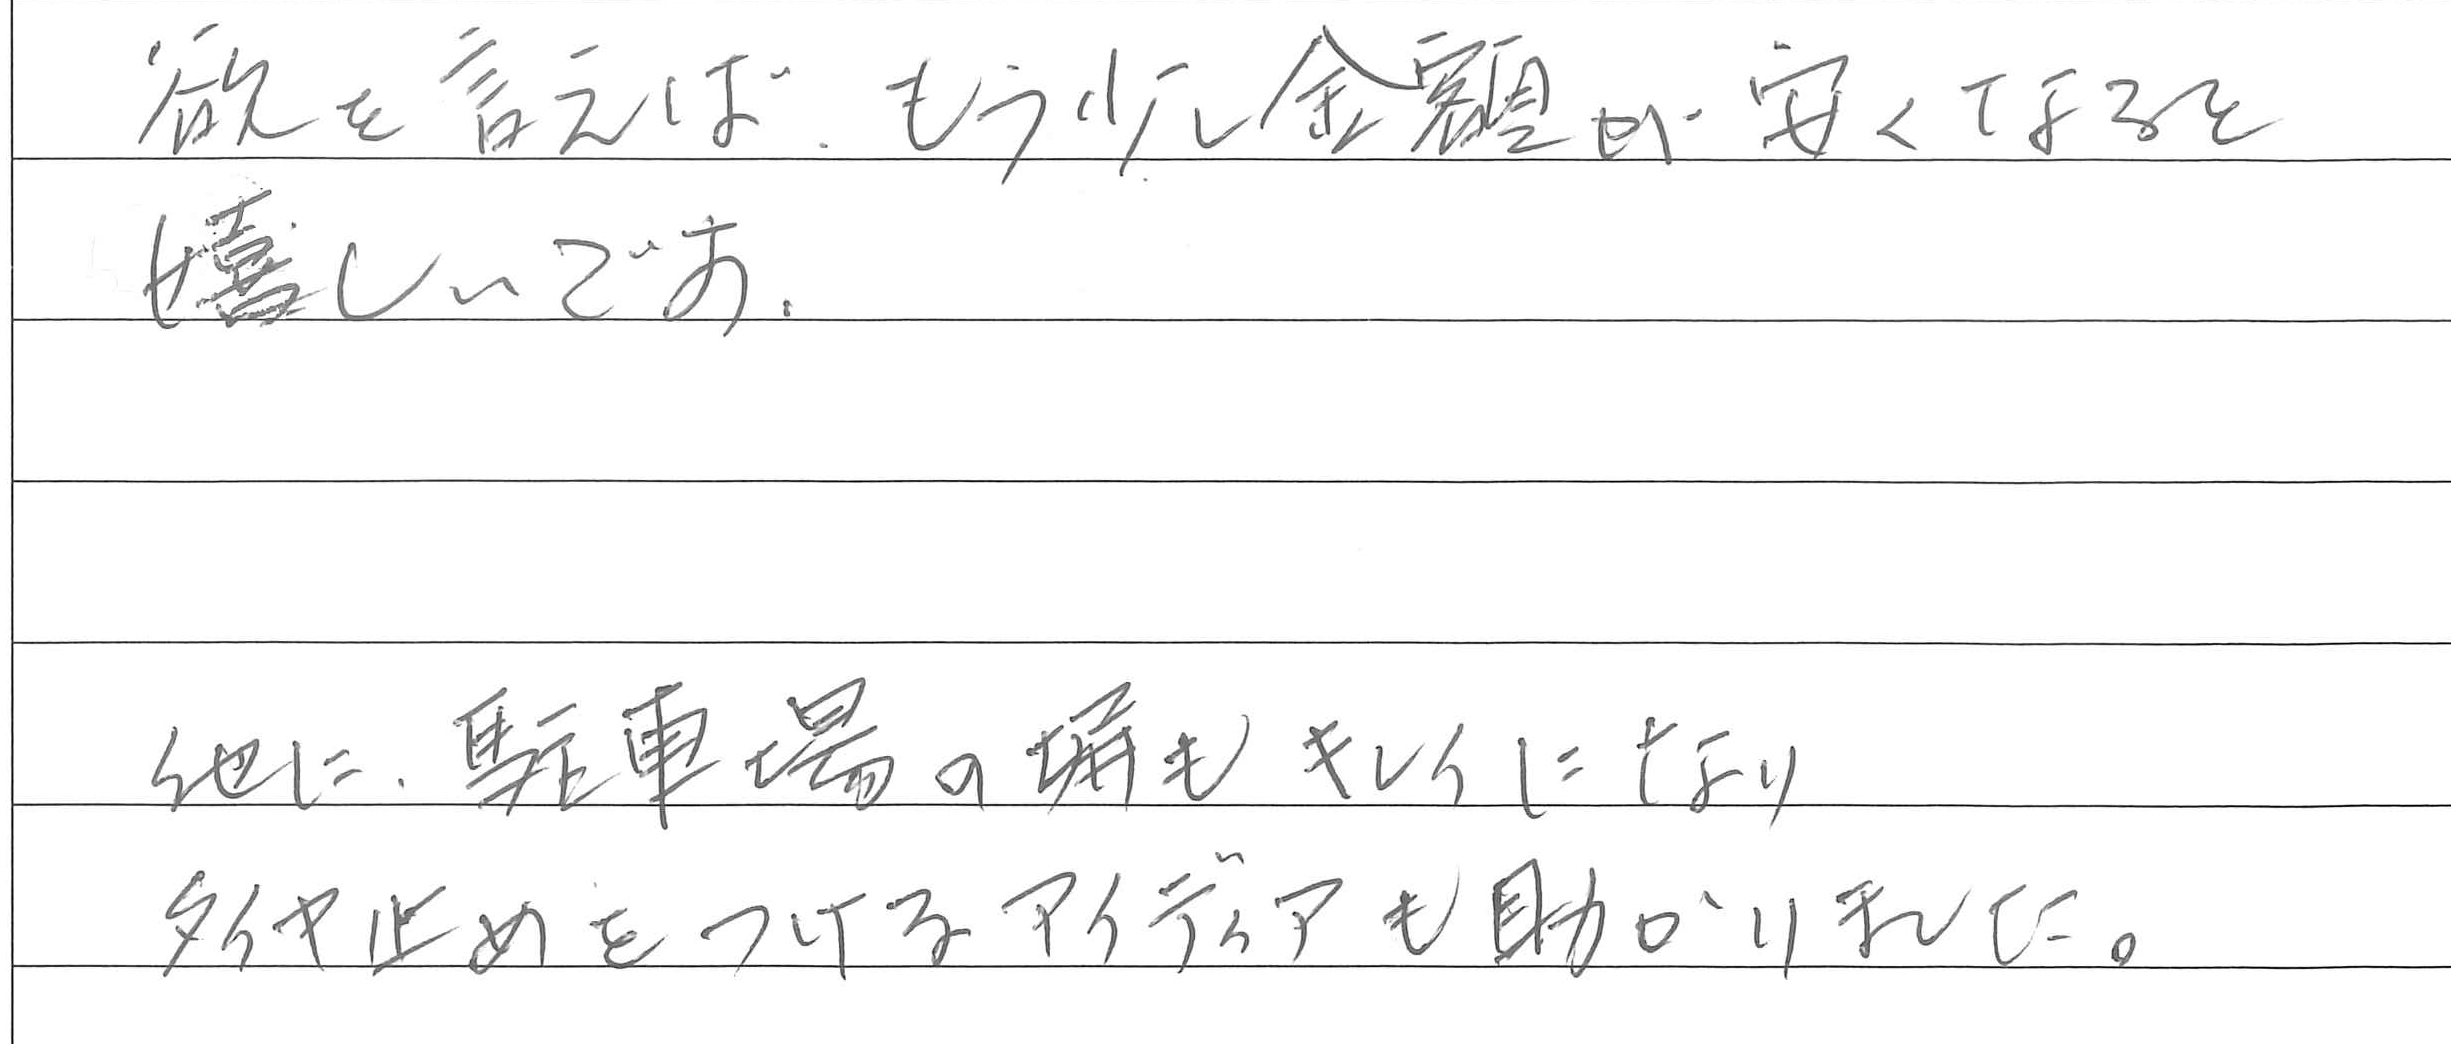 欲を言えば、もう少し金額が安くなると
嬉しいです。
他に、駐車場の塀もキレイになり
タイヤ止めをつけるアイディアも助かりました。